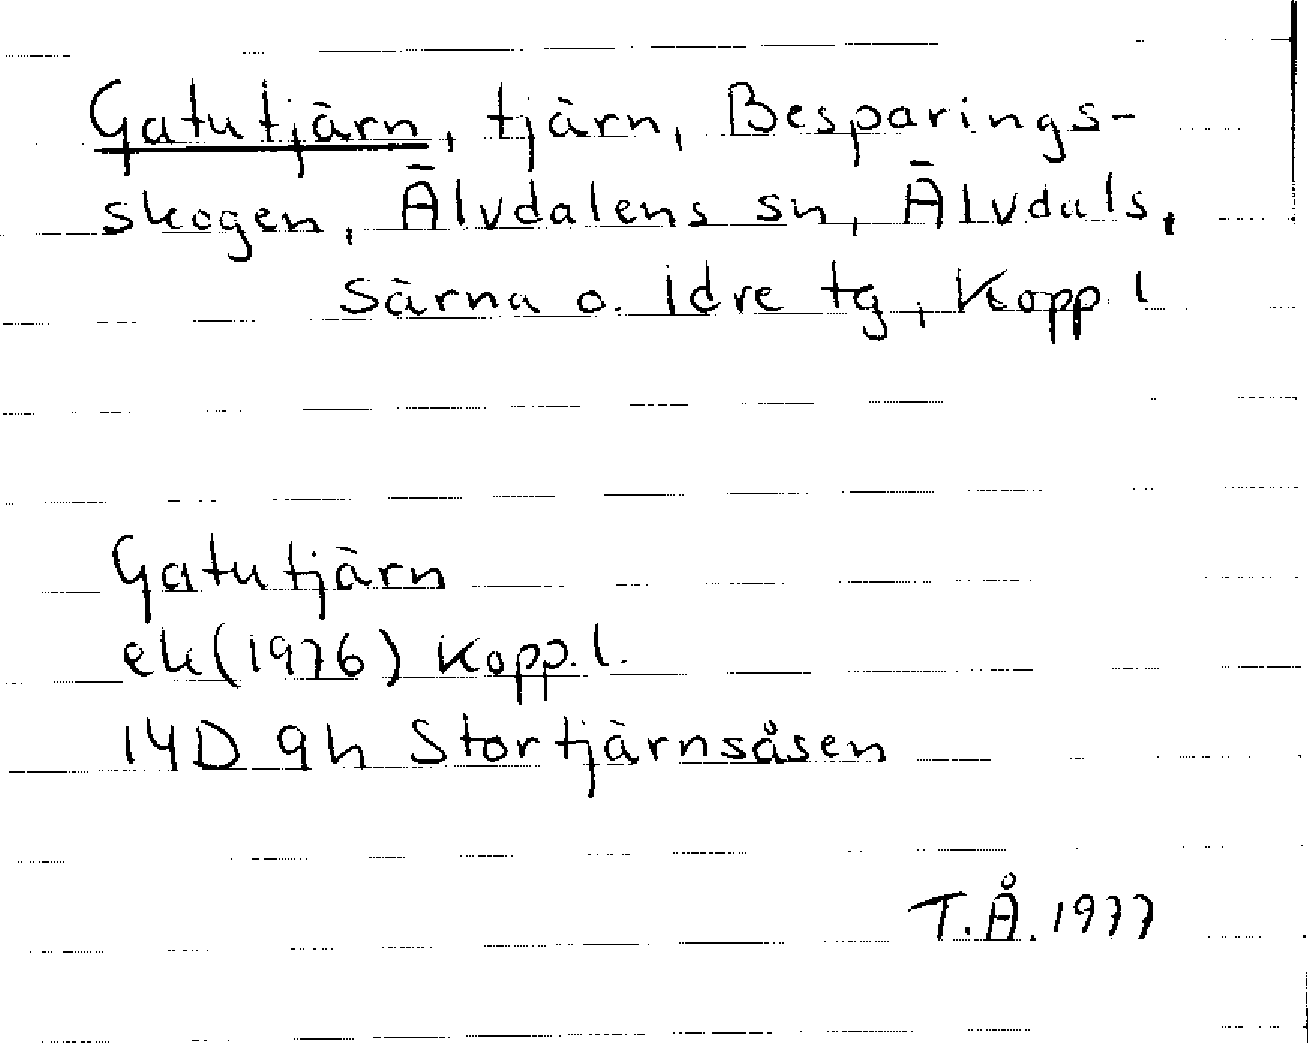 Gatutjärn, tjärn, Besparings-
skogen, Älvdalens sn, Älvdals,
särna o. Idre tg, Kopp l
Gatutjärn
ek (1976) Kopp. l.
14D 9h Stortjärnsåsen
T.Å. 1977